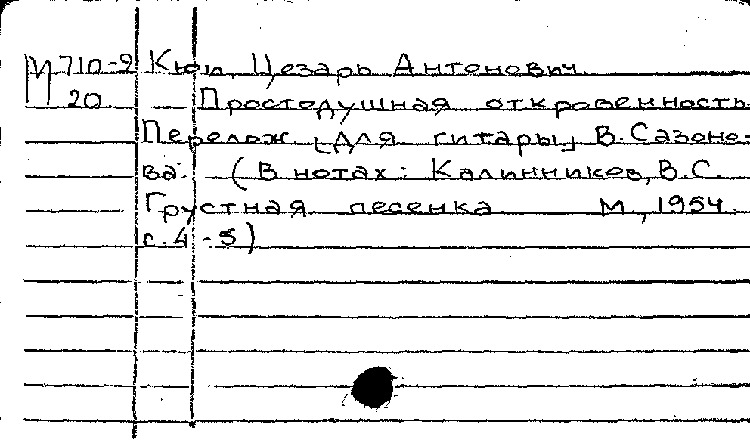 М 710-2 Кюи, Цезарь Антонович
20 Простодушная откровенность
Перелож. [для гитары] В. Сазоно-
ва. (В нотах: Калинников, В.С.
Грустная песенка М., 1954.
с. 4-5)